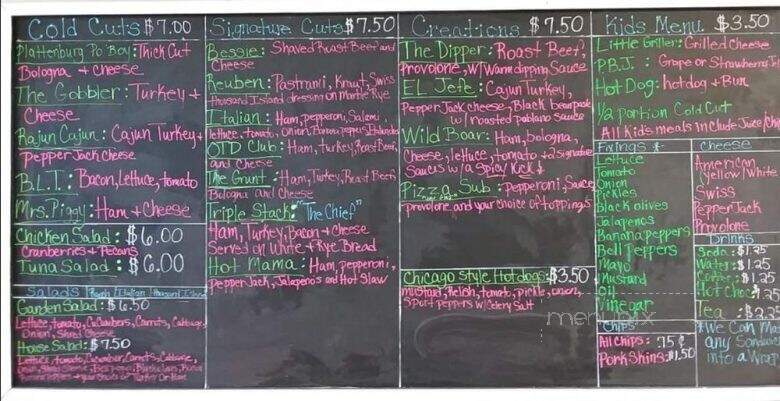 Cold Cuts $7.00
Plattenburg Po Boy: Thick Cut
Bologna + cheese
The Gobbler: Turkey +
Cheese
Rajun Cajun: Cajun Turkey +
Pepper Jack Cheese
B.L.T: Bacon, Lettuce, Tomato
Mrs. Piggy: Ham + Cheese
Chicken Salad: $6.00
Cranberries + Pecans
Tuna Salad: $6.00
Salads
Garden Salad: $6.50
Lettuce, Tomato, Cucumbers, Carrots, Cabbage,
Onion, Shred Cheese
House Salad: $7.50
Lettuce, Tomato, Cucumber, Carrots, Cabbage,
Signature Cuts $7.50
Bessie: Shaved Roast Beef and
Cheese
Reuben: Pastrami, Kraut, Swiss
thousand Island dressing on Marble Rye
Italian: Ham, pepperoni, Salami
lettuce, tomato, onion, Banana peppers,
OTD Club: Ham, Turkey, Roast Beef,
and Cheese
The Grunt: Ham, Turkey, Roast Beef
Bologna and Cheese
Triple Stack: "The Chief"
Ham, Turkey, Bacon + Cheese
Served on White + Rye Bread
Hot Mama: Ham, pepperoni,
Pepper Jack, Jalapenos and Hot Slaw
Creations $7.50
The Dipper: Roast Beef,
Provolone, w/ Warm dipping Sauce
EL Jefe: Cajun Turkey,
Pepper Jack cheese, Black bean
w/ roasted poblano Sauce
Wild Boar: Ham, bologna,
Cheese, lettuce, tomato + 2 signature
Sauces w/ a Spicy Kick
Pizza Sub: Pepperoni, Sauce,
provolone and your choice of toppings
Chicago Style Hotdogs: $3.50
mustard, Relish, tomato, pickle, onion,
Sport Peppers w/ Celery Salt
Kids Menu $3.50
Little Griller: Grilled Cheese
P.B.J.: Grape or Strawberry
Hot Dog: hotdog + Bun
1/2 portion Cold Cut
All Kids meals include Juice/
Fixings
Lettuce
Tomato
Onion
Pickles
Black olives
Jalapenos
Banana peppers
Bell Peppers
Mayo
Mustard
Oil
Vinegar
Chips
All chips: 75¢
Pork Skins: $1.50
Cheese
American
yellow/white
Swiss
Pepper Jack
Provolone
Drinks
Soda: $1.25
Water: $1.25
Coffee: $1.25
Hot Choc $1.25
Tea
*We Can Make
any Sandwich
into a Wrap
menupix